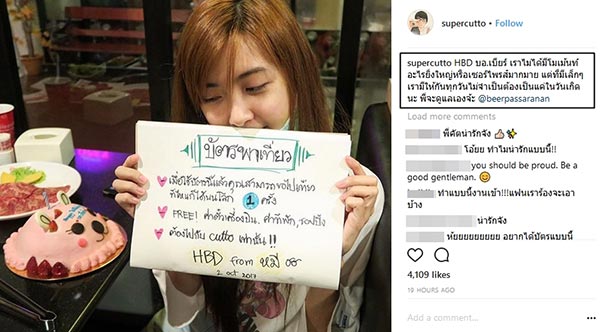 บัตรพาเที่ยว
เมื่อใช้บัตรนี้แล้วคุณสามารถขอไปเที่ยว
ที่ไหนก็ได้บนโลก 1 ครั้ง
FREE! ค่าตั๋วเครื่องบิน, ค่าที่พัก, ชอปปิ้ง
ต้องไปกับ cutto เท่านั้น !!
HBD from หมี
2 oct 2017
supercutto • Follow
supercutto HBD บอ.เบียร์ เราไม่ได้มีโมเม้นท์
อะไรยิ่งใหญ่หรือเซอร์ไพรส์มากมาย แต่ที่มีเล็กๆ
เรามีให้กันทุกวันไม่จำเป็นต้องเป็นแค่ในวันเกิด
นะ พี่จะดูแลเองจ้ะ @beerpassaranan
Load more comments
พี่คัตน่ารักจัง
โอ้ยย ทำไมน่ารักแบบนี้!!
you should be proud. Be a
good gentleman.
ทำแบบนี้งานเข้า!!!แฟนเราร้องจะเอา
บ้าง
น่ารักจัง
ห้ยยยยยยยย อยากได้บัตรแบบนี้
4,109 likes
19 HOURS AGO
Add a comment...